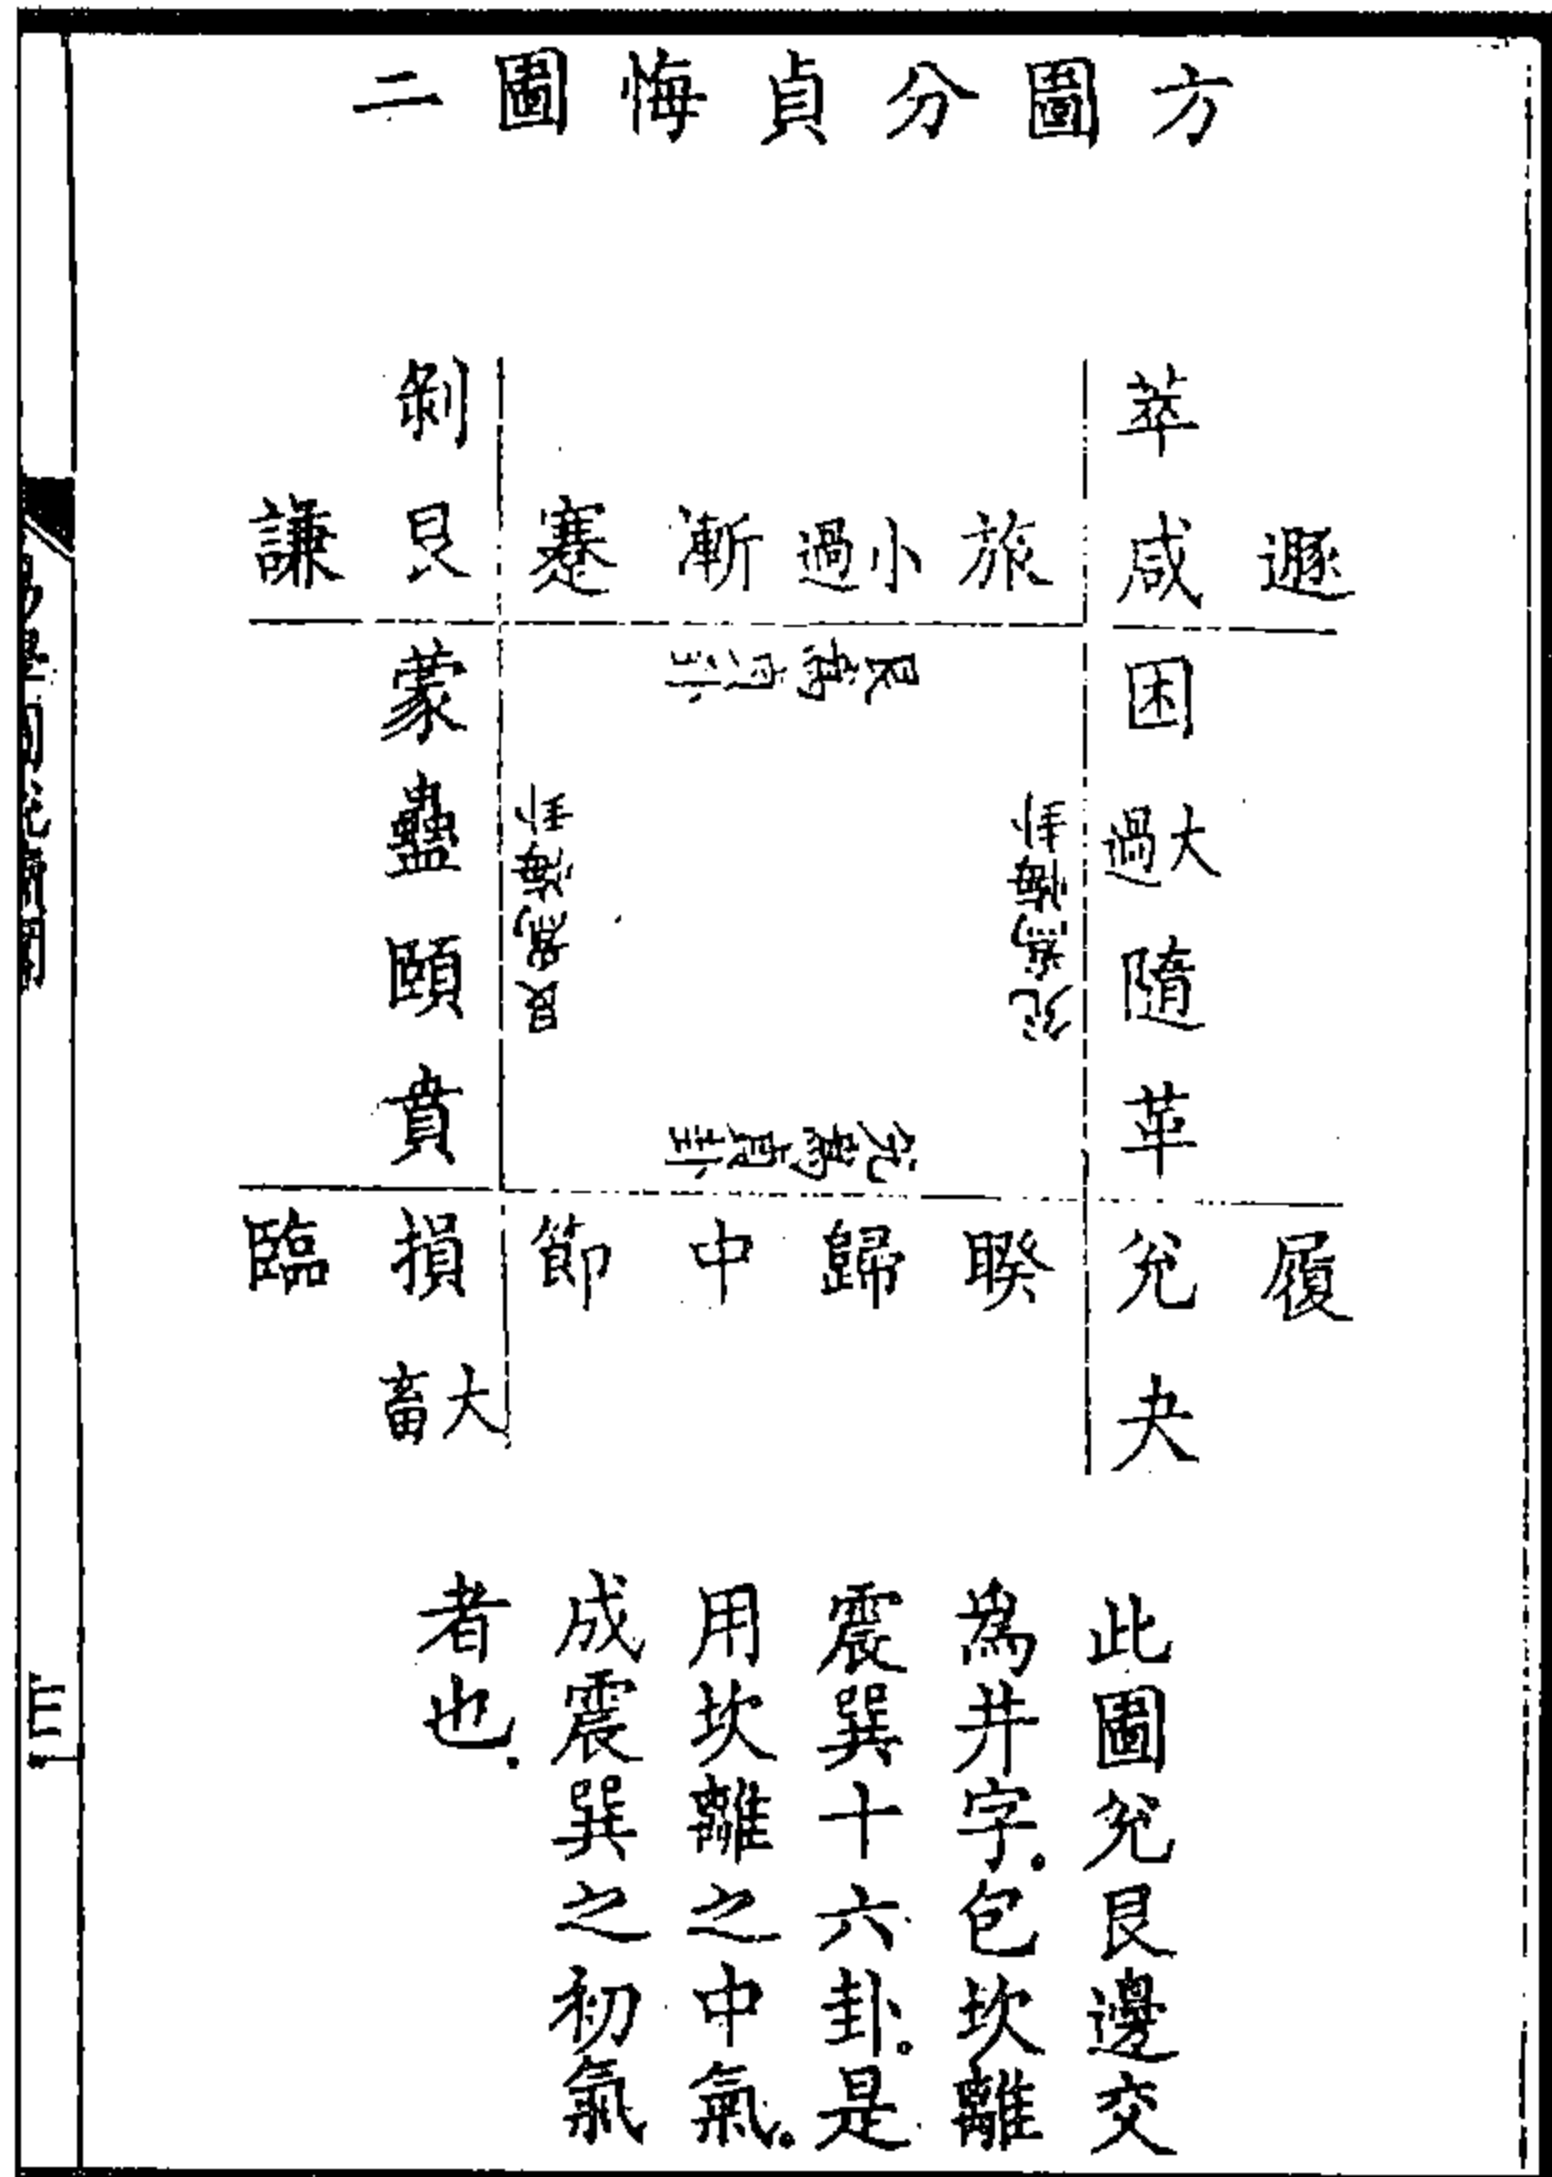 方圖分貞悔圖二
萃 剝
遯 咸 旅 小過 漸 蹇 艮 謙
艮為貞卦
困 蒙
大過 蠱
隨 頤
革 賁
兌為悔卦
艮為悔卦
兌為貞卦
履 兌 睽 歸 中 節 損 臨
夬 大畜
此圖兌艮邊交
為井字。包坎離
震巽十六卦。是
用坎離之中氣。
成震巽之初氣
者也。